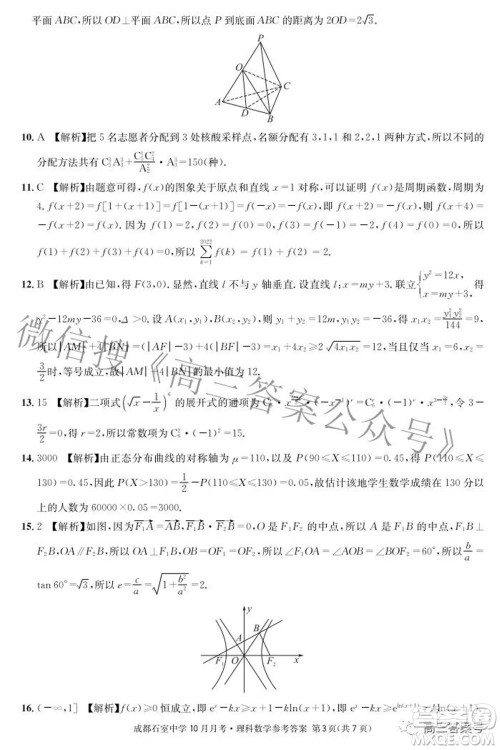 平面 ABC,所以 OD⊥平面 ABC,所以点 P 到底面 ABC 的距离为 2OD=2√3.
P
O
C
D
A
B
10. A 【解析】把 5 名志愿者分配到 3 处核酸采样点,名额分配有 3,1,1 和 2,2,1 两种方式,所以不同的
分配方法共有
=150(种).
11. C 【解析】由题意可得,f(x)的图象关于原点和直线 x=1 对称,可以证明 f(x)是周期函数,周期为
4. f(x+2)=f[1+(x+1)]=f[1-(x+1)]=f(-x)=-f(x),即 f(x+2)=-f(x),则 f(x+4)=
-f(x+2)=f(x). 因为 f(1)=2,f(2)=f(0)=0,f(3)=f(-1)=-f(1)=-2,f(4)=f(0)=0,所以
f(1)+f(2)+f(3)+f(4)=0,所以 ∑ f(k)=f(1)+f(2)=2.
2022
k=1
12. B 【解析】由已知,得 F(3,0).显然,直线 l 不与 y 轴垂直.设直线 l:x=my+3.联立{y²=12x, 得
x=my+3,
-12my-36=0,Δ>0.设 A(x₁,y₁),B(x₂,y₂),则 y₁y₂=-36,得
=9,
所以|AM|+4|BN|=(|AF|-3)+4(|BF|-3)=x₁+4x₂≥2√4x₁x₂=12,当且仅当 x₁=6,x₂=
3/2 时,等号成立,故|AM|+4|BN|的最小值为 12.
13. 15 【解析】二项式
的展开式的通项为
,令 3-
3r/2=0,得 r=2,所以常数项为
14. 3000 【解析】由正态分布曲线的对称轴为 μ=110,以及 P(90≤X≤110)=0.45,得 P(110≤X≤
130)=0.45,因此 P(X≥130)=1/2-P(110≤X≤130)=0.05.故估计该地学生数学成绩在 130 分以
上的人数为 60000×0.05=3000.
15. 2 【解析】如图,因为 F₁A=AB,
=0,O 是 F₁F₂ 的中点,所以 A 是 F₁B 的中点,F₁B⊥
F₂B,OA∥F₂B,所以 OA⊥F₁B,OB=OF₁=OF₂,所以∠F₁OA=∠AOB=∠BOF₂=60°,所以 b/a=
tan 60°=√3,所以 e=c/a=√(1+b²/a²)=2.
y
A
B
F₁
O
F₂
x
16. (-∞,1] 【解析】f(x)≥0 恒成立,即 eˣ-kx+k≥
成都石室中学 10 月月考·理科数学参考答案 第 3 页(共 7 页)
微信搜《高三答案公众号》
高三答案号